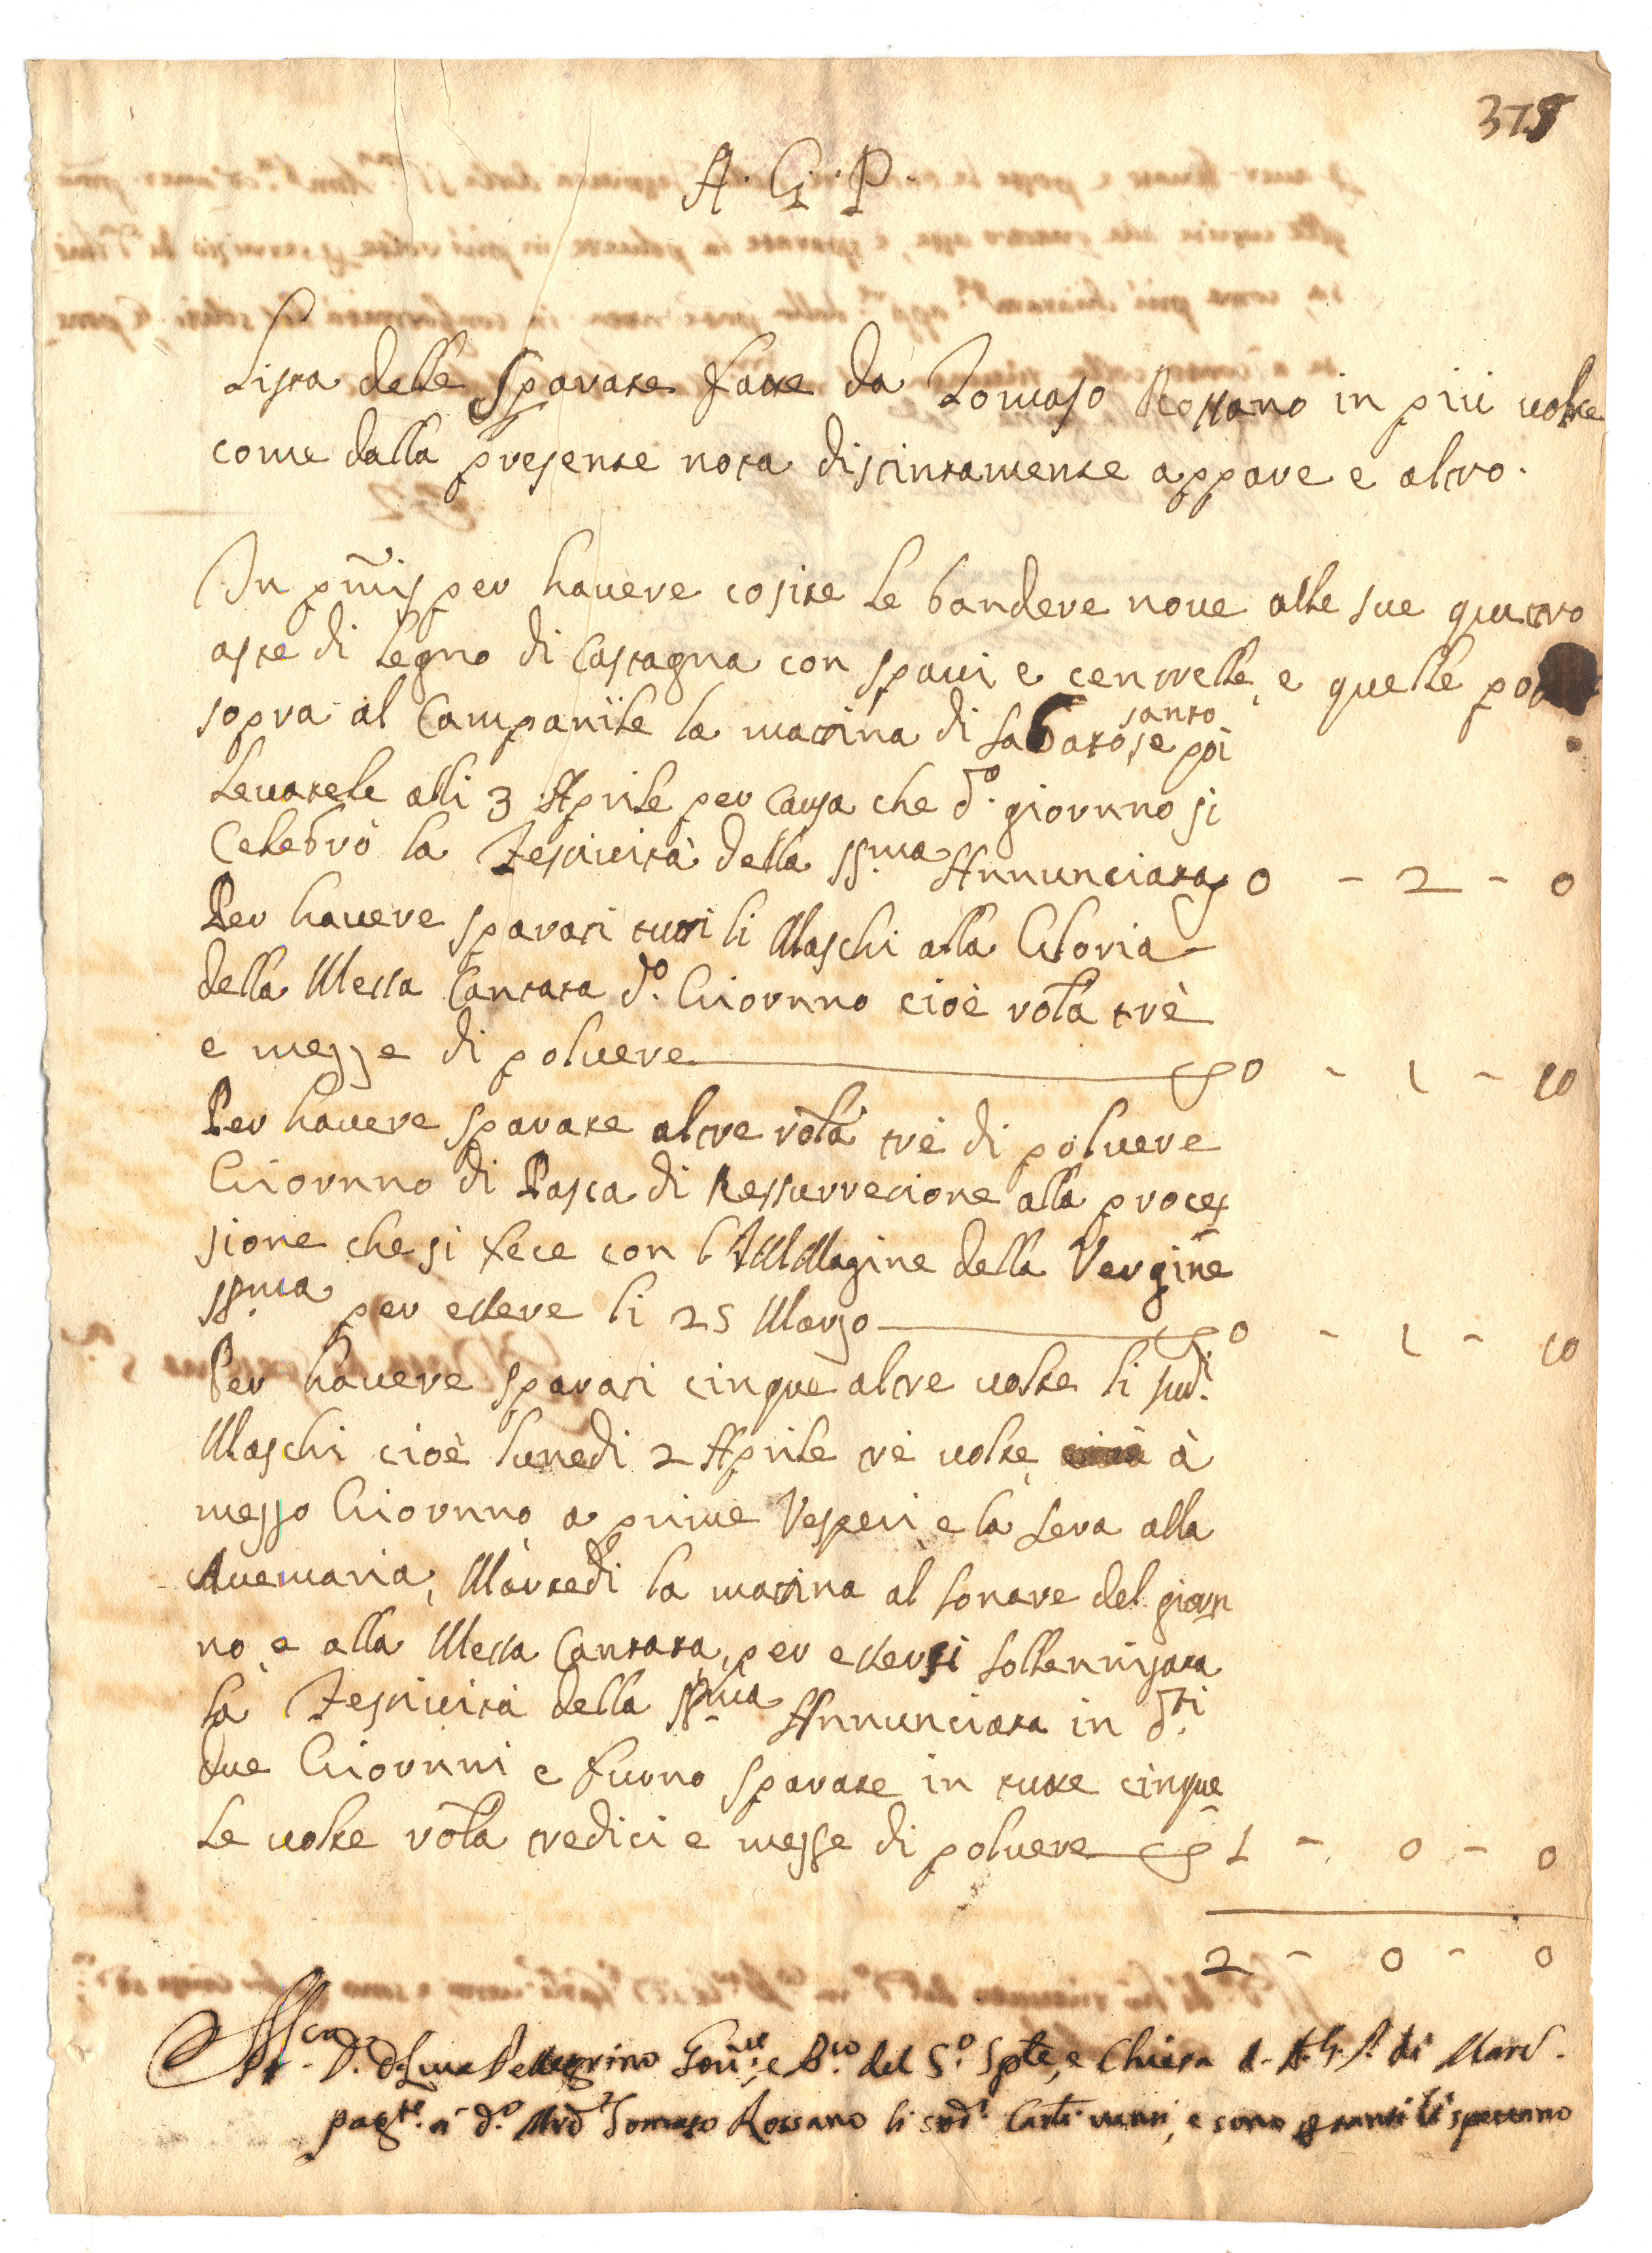 378
A. G. P.
Lista delle sparate fatte da Tomaso Rossano in più uolte
come dalla presente nota distintamente appare e altro.
In pm̃is per hauere cosite le bandere noue alle sue quattro
aste di legno di Castagna con spaui e centrelle, e quelle po
sopra al Campanile la matina di sabato santo, e poi
leuatele alli 3 Aprile per causa che d.º giornno si
Celebrò la Festiuità della SS.ma Annunciata 0 - 2 - 0
Per hauere sparati tutti li Maschi alla Gloria
della Messa Cantata d.º Giornno cioè rotla trè
e mezze di poluere 0 - 1 - 10
Per hauere sparate altre rotla trè di poluere
Giornno di Pasca di Ressurretione alla proces
sione che si fece con l'IMMagine della Vergine
SS.ma per essere li 25 Marzo 0 - 1 - 10
Per hauere sparati cinque altre uolte li sud.i
Maschi cioè lunedi 2 Aprile trè uolte, à
mezzo Giornno a prime Vesperi e la sera alla
Auemaria, Martedi la matina al sonare del giorn
no, e alla Messa Cantata, per essersi sollennizata
la Festiuità della SS.ma Annunciata in d.ti
due Giornni e furno sparate in tutte cinque
le uolte rotla tredici e mezze di poluere 1 - 0 - 0
2 - 0 - 0
D. D. Luca Pellegrino e del S.º Spte, e Chiesa d. A. G. P. di Mard.
pag.te à d.º Tomaso Rossano li sud.i Carlì uinti, e sono tanti li spettanno